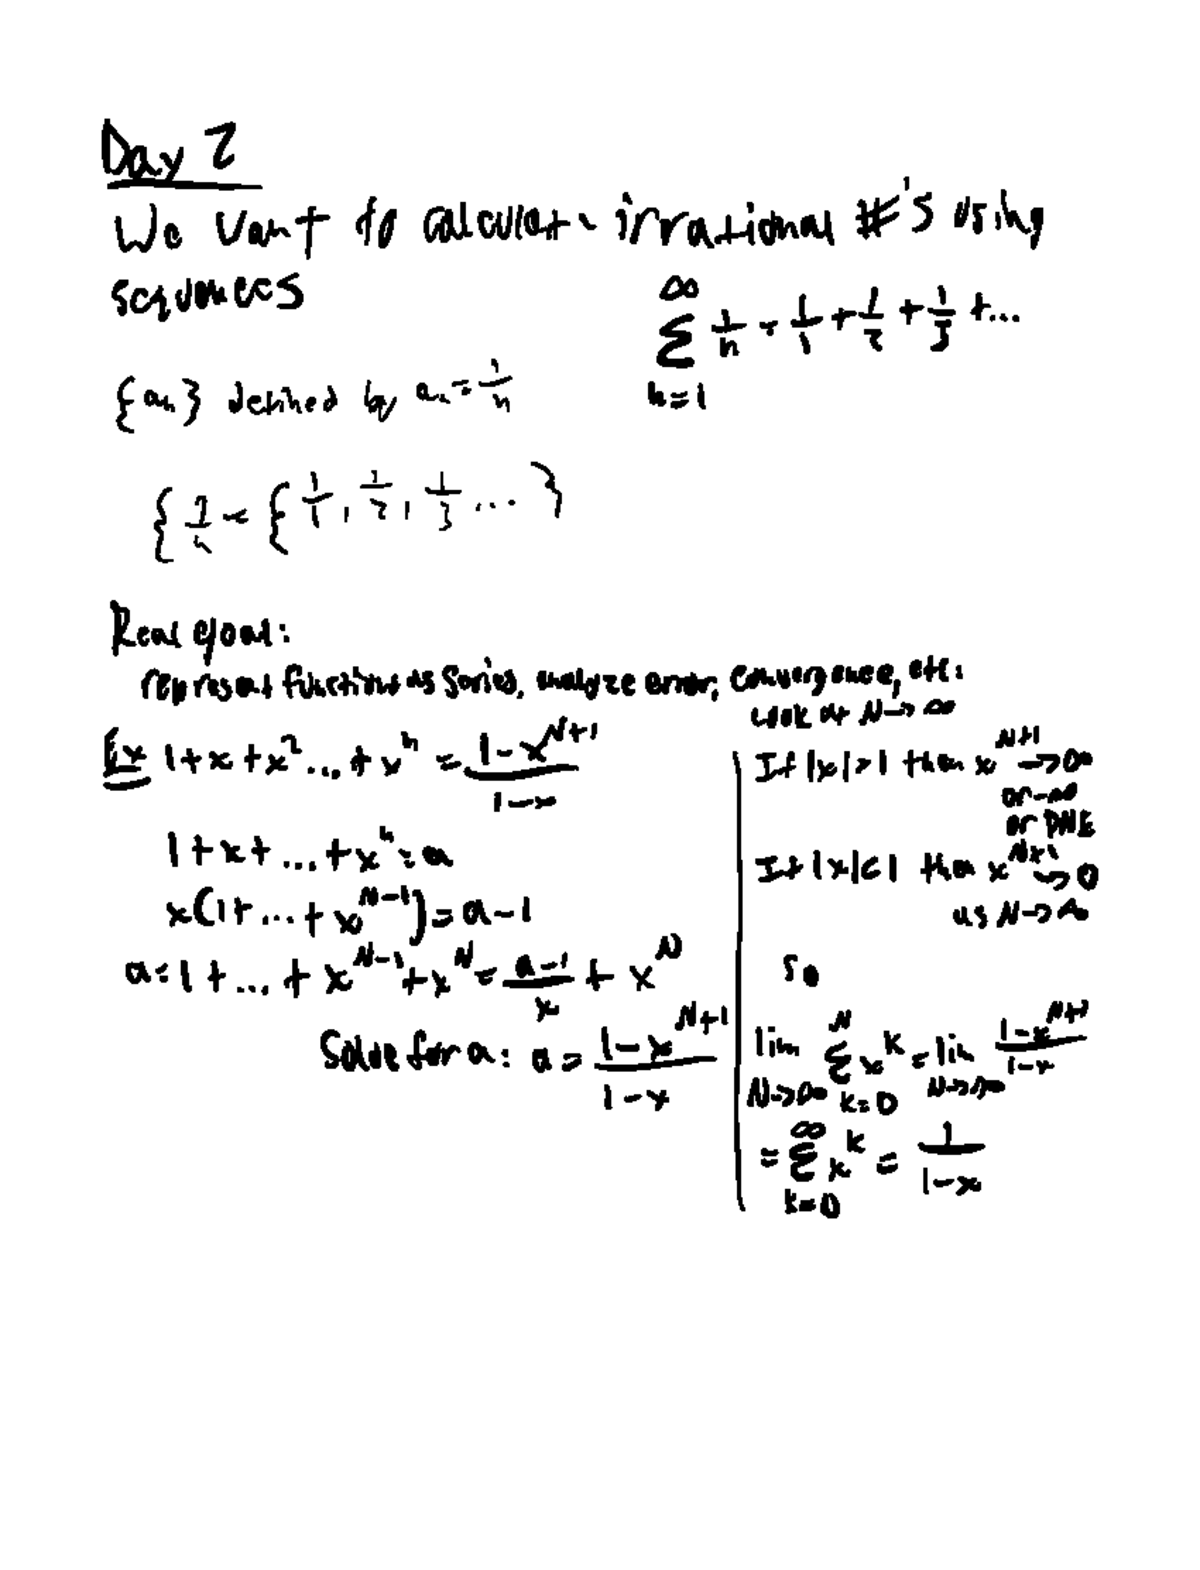 Day 2
We want to calculate irrational #'s using
sequences
∞
Σ 1/n = 1/1 + 1/2 + 1/3 + ...
n=1
{an} defined by an = 1/n
{1/n = {1/1, 1/2, 1/3 ... }
Real goal:
represent functions as series, analyze error, convergence, etc.
Ex 1+x+x^2...+x^n = (1-x^(N+1))/(1-x)
1+x+...+x^n = a
x(1+...+x^(N-1)) = a-1
a = 1+...+x^(N-1)+x^N = (a-1)/x + x^N
Solve for a: a = (1-x^(N+1))/(1-x)
Look at N→∞
If |x|>1 then x^(N+1) →∞
or -∞
or DNE
If |x|<1 then x^(N+1) → 0
as N→∞
So
lim N→∞ Σ k=0 N x^k = lim N→∞ (1-x^(N+1))/(1-x)
= Σ k=0 ∞ x^k = 1/(1-x)